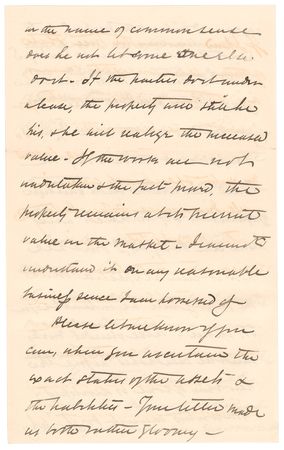 in the name of common sense
does he not let some one else
do it - If the parties do it under
a lease, the property will still be
his, & he will realize the increased
value - If the works are not
undertaken & the fact proved, the
property remains at its present
value in the market - I cannot
understand it on any reasonable
business sense I am possessed of
Please let me know if you
can, when you ascertain the
exact status of the assets &
the liabilities - Your letter made
us both rather gloomy -